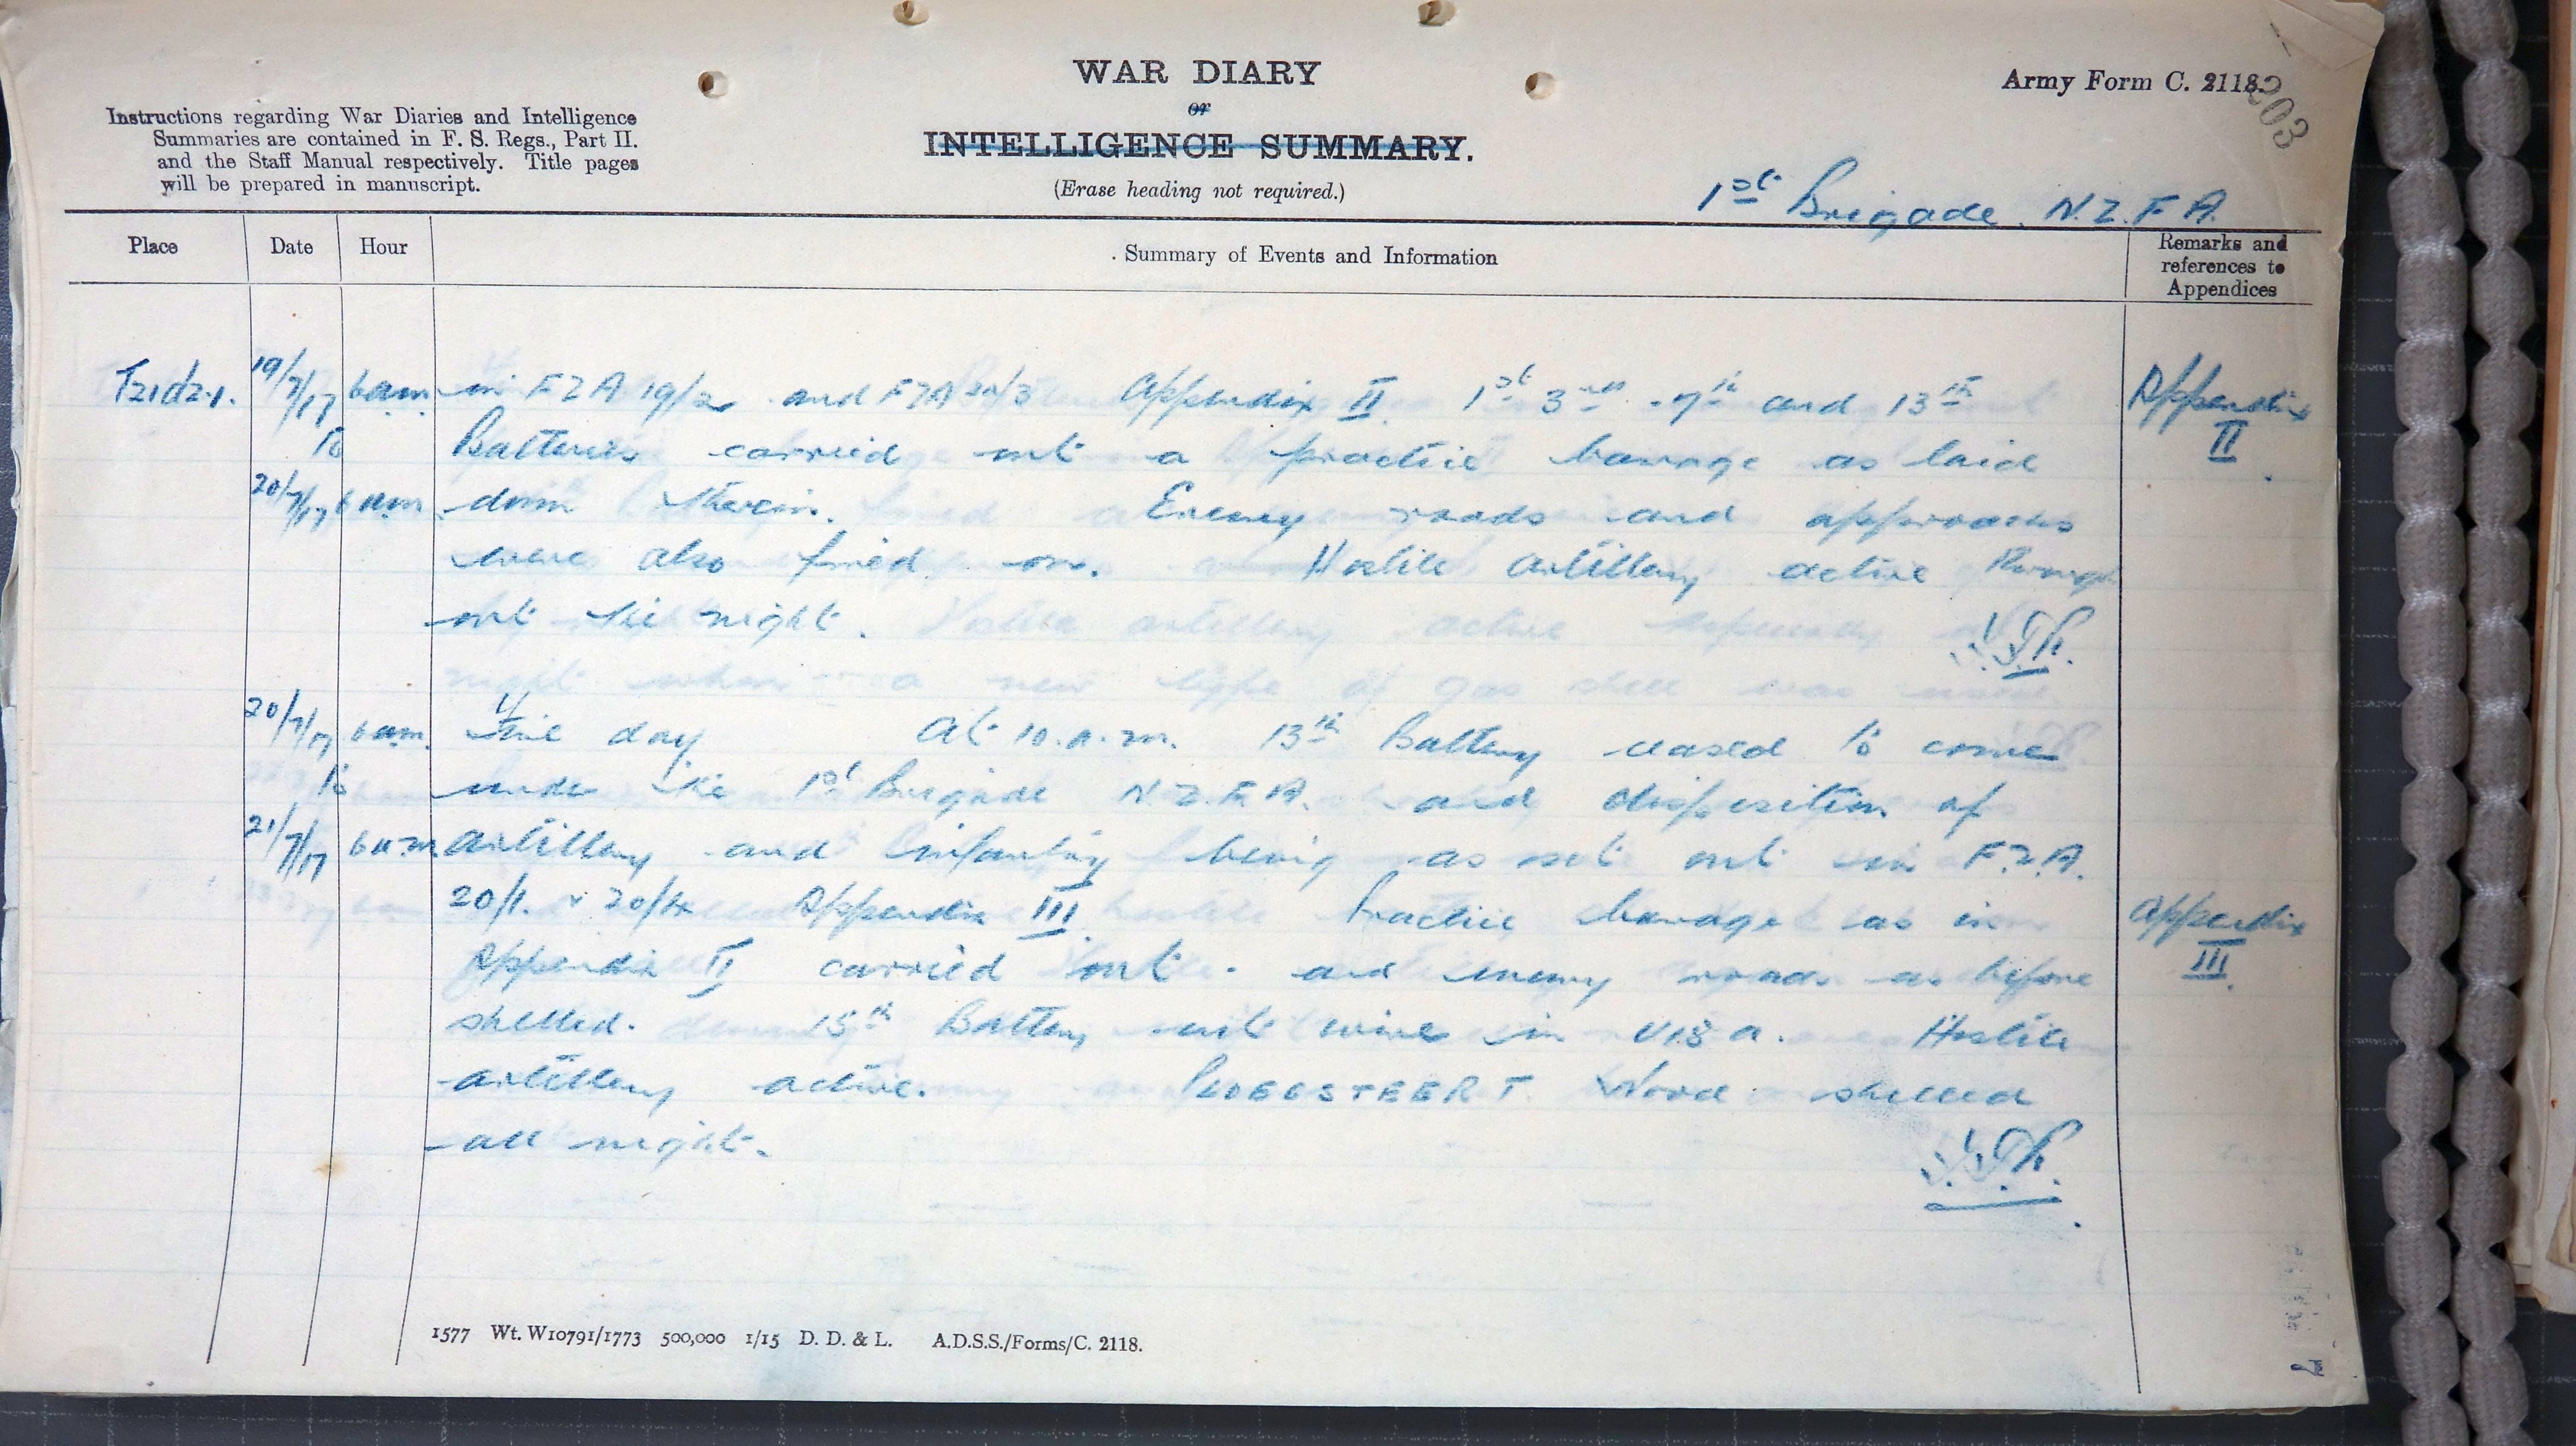 WAR DIARY
or
INTELLIGENCE SUMMARY.
(Erase heading not required.)
Army Form C. 2118.
Instructions regarding War Diaries and Intelligence
Summaries are contained in F. S. Regs., Part II.
and the Staff Manual respectively. Title pages
will be prepared in manuscript.
1st Brigade. N.Z.F.A.
Place Date Hour Summary of Events and Information Remarks and references to Appendices
T21d2.1. 19/7/17 6am in FZA 19/2 and FZA 20/3 Appendix II. 1st 3rd 7th and 13th Appendix II
to Batteries carried out a practice barrage as laid
20/7/17 6am down therein. Enemy roads and approaches
were also fired on. Hostile artillery active through
out the night.
20/7/17 6am. Fine day At 10.a.m. 13th Battery ceased to come
to under the 1st Brigade N.Z.F.A. and disposition of
21/7/17 6am artillery and infantry being as set out in F.Z.A.
20/1. & 20/4 Appendix III. Practice barrage as in Appendix III.
Appendix II carried out. and enemy roads as before
shelled. 15th Battery cut wire in U18a. Hostile
artillery active. PLOEGSTEERT Wood shelled
all night.
1577 Wt. W10791/1773 500,000 1/15 D. D. & L. A.D.S.S./Forms/C. 2118.